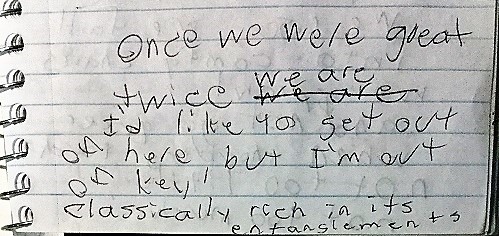 Once we were great
we are
twice we are
I'd like to get out
of here but I'm out
of key
classically rich in its
entanglements